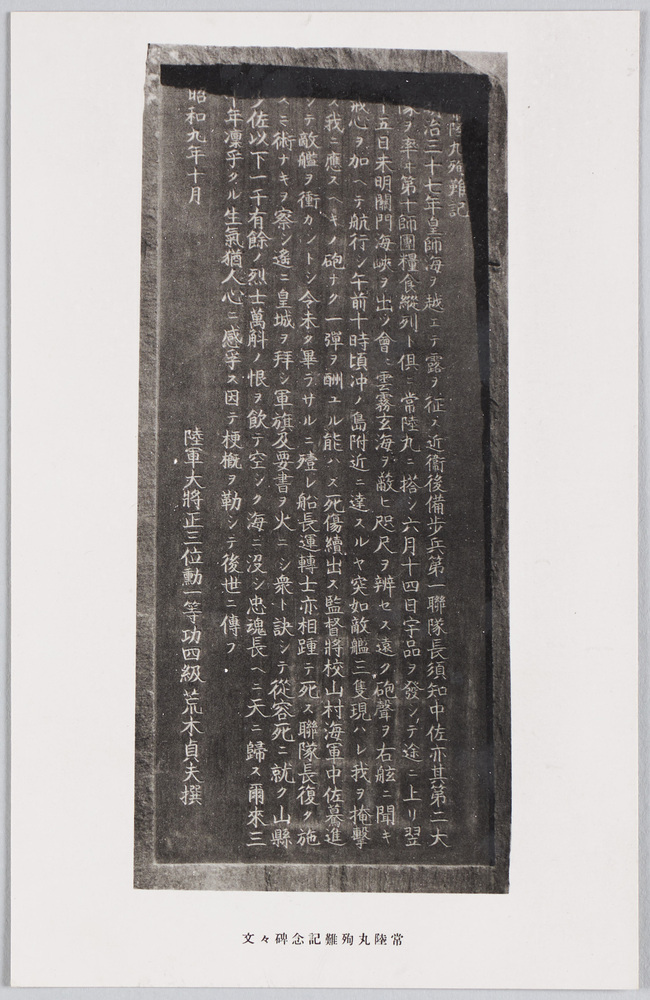 陸丸殉難記
治三十七年皇師海ヲ越エテ露ヲ征ス近衞後備步兵第一聯隊長須知中佐亦其第二大
隊ヲ率ヰ第十師團糧食縱列ト俱ニ常陸丸ニ搭シ六月十四日宇品ヲ發シテ途ニ上リ翌
十五日未明關門海峽ヲ出ツ會ニ雲霧玄海ヲ蔽ヒ咫尺ヲ辨セス遠ク砲聲ヲ右舷ニ聞キ
戒心ヲ加ヘテ航行シ午前十時頃沖ノ島附近ニ達スルヤ突如敵艦三隻現ハレ我ヲ掩擊
ス我ニ應スヘキノ砲ナク一彈ヲ酬ユル能ハス死傷續出ス監督將校山村海軍中佐驀進
シテ敵艦ヲ衝カントシ令未タ畢ラサルニ殪レ船長運轉士亦相踵テ死ス聯隊長復タ施
スニ術ナキヲ察シ遙ニ皇城ヲ拜シ軍旗及要書ヲ火ニシ衆ト訣シテ從容死ニ就ク山縣
少佐以下一千有餘ノ烈士萬斛ノ恨ヲ飮テ空シク海ニ沒シ忠魂長ヘニ天ニ歸ス爾來三
十年凜乎タル生氣猶人心ニ感孚ス因テ梗槪ヲ勒シテ後世ニ傳フ
昭和九年十月
陸軍大將正三位勳一等功四級 荒木貞夫撰
文々碑念記難殉丸陸常